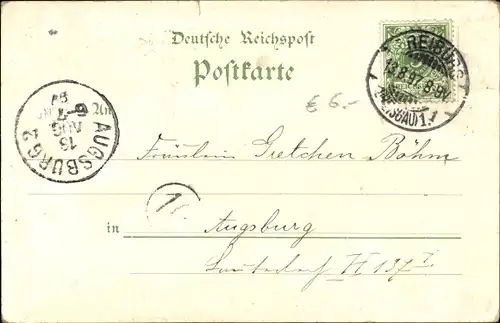 Deutsche Reichspost
Postkarte
FREIBURG
8.97. 8-9V.
(BREISGAU) 1.
€ 6.-
AUGSBURG 2
16
AUG
97
An
Fräulein Gretchen Böhm
1
in Augsburg
H 137